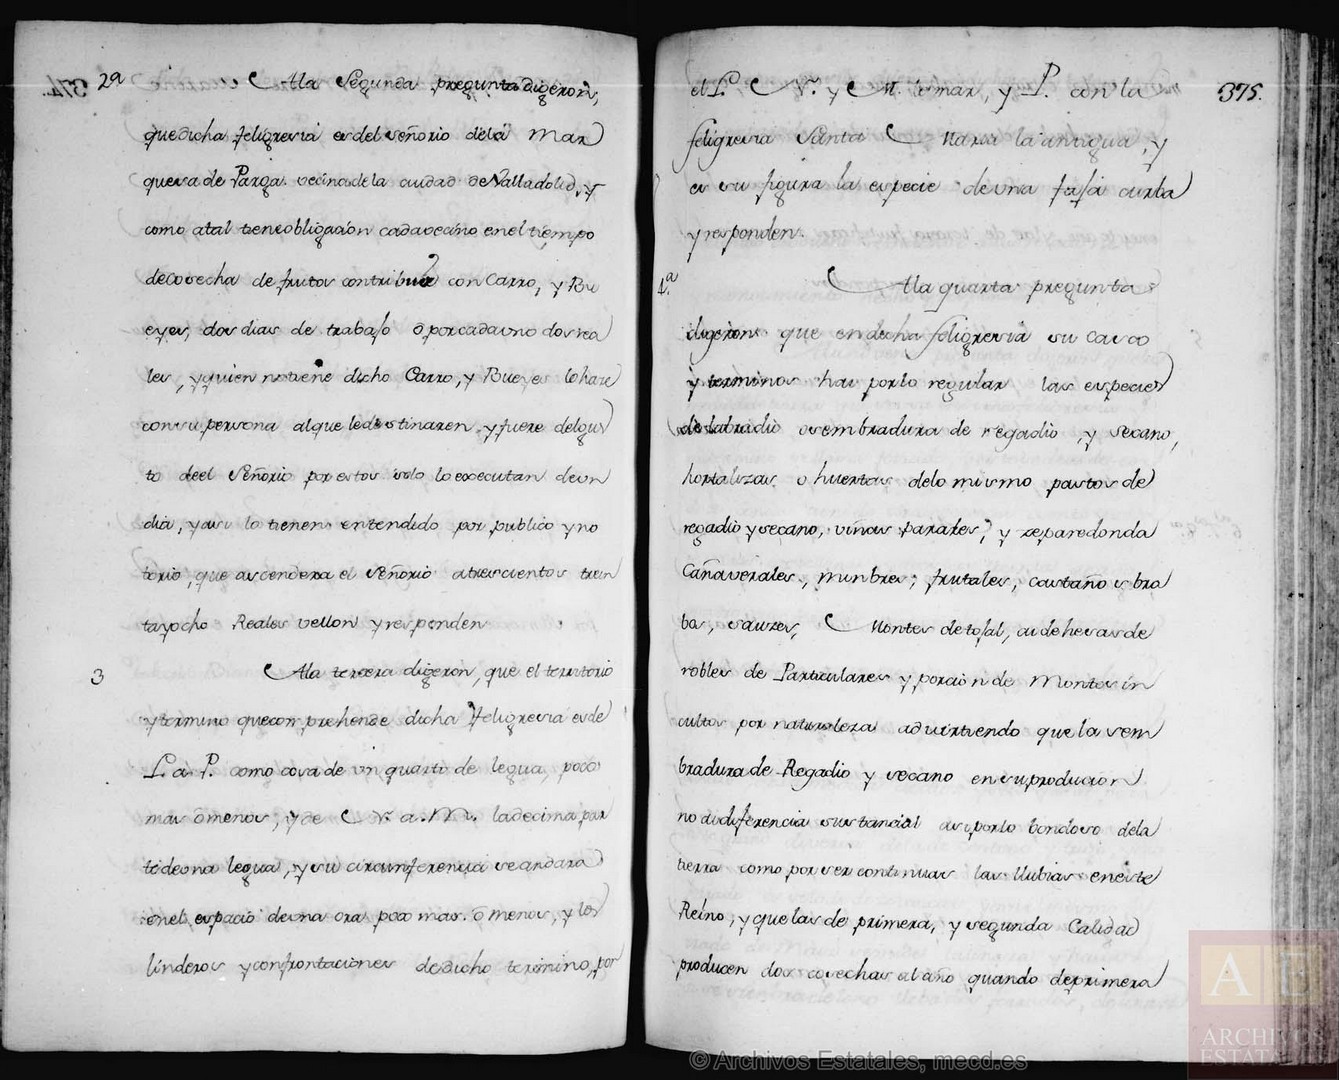 2ª A la Segunda pregunta digeron,
que dicha feligresia es del señorio de la Mar
quesa de Parga vecina de la ciudad de Valladolid, y
como a tal tiene obligacion cada vecino en el tiempo
de cosecha de frutos contribuir con Carro, y Bu
eyes, dos dias de trabajo o por cada uno dos rea
les, y quien no tiene dicho Carro, y Bueyes lo hace
con su persona al que le destinaren y fuere del gus
to de el Señorio por estos solo lo executan de un
dia, y asi lo tienen entendido por publico y no
torio, que ascendera el señorio a trescientos trein
ta y ocho Reales vellon y responden
3 A la tersera digeron, que el territorio
y termino que comprehende dicha feligresia es de
L. a P. como cosa de un quarto de legua, poco
mas o menos, y de N. a M. la decima par
te de una legua, y su circunferencia se andara
en el espacio de una ora poco mas o menos, y los
linderos y confrontaciones de dicho termino, por
375.
el L. N. y M. la mar, y P. con la
feligresia Santa Maria la antigua, y
es su figura la especie de una faja curba
y responden.
4ª A la quarta pregunta
digeron que en dicha feligresia su casco
y terminos hai por lo regular las especies
de labradio o sembradura de regadio, y secano,
hortalizas o huertas de lo mismo pastos de
regadio y secano, viñas parrales, y zepa redonda
Cañaverales, mimbres, frutales, castaños bra
bos, sauzes, Montes de tojal, de hesas de
robles de Particulares y porcion de Montes in
cultos por naturaleza advirtiendo que la sem
bradura de Regadio y secano en su producion
no dudiferencia sustancial asi por lo bondoso de la
tierra como por ser continuas las llubias en este
Reino, y que las de primera, y segunda Calidad
producen dos cosechas al año quando de primera
© Archivos Estatales, mecd.es
A E
ARCHIVOS
ESTATALES